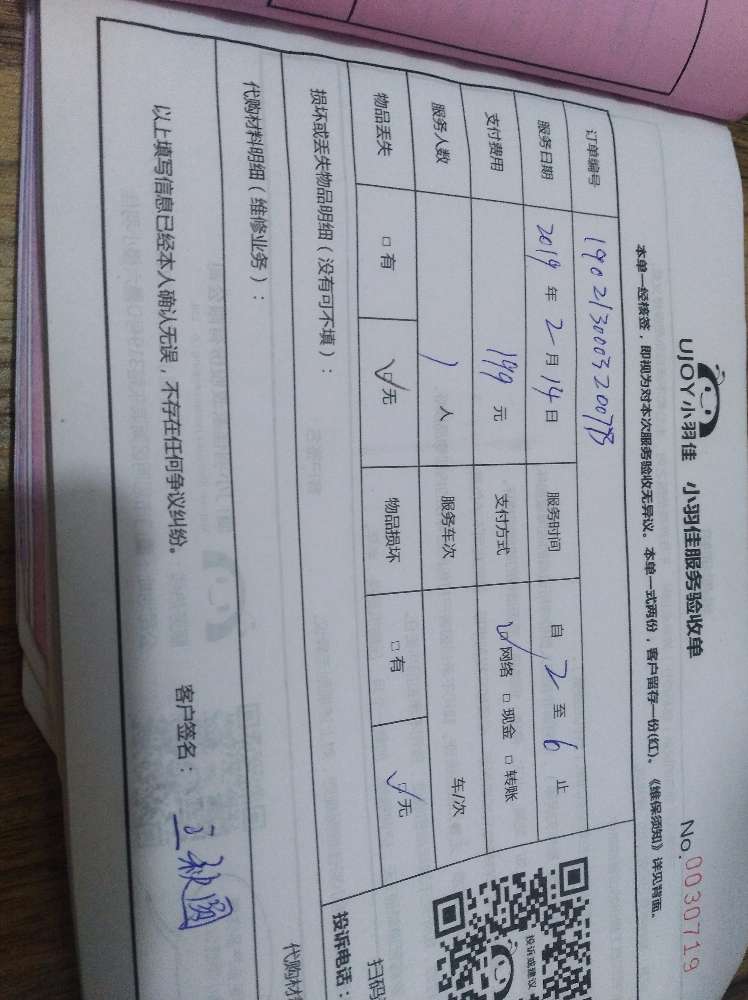 UJOY小羽佳 小羽佳服务验收单 No.0030719
本单一经核签，即视为对本次服务验收无异议。本单一式两份，客户留存一份(红)。《维保须知》详见背面。
订单编号 19021300032007B
服务日期 2019年2月14日 服务时间 自2至6止
支付费用 199元 支付方式 ☑网络 □现金 □转账
服务人数 1人 服务车次 车/次
物品丢失 □有 ☑无 物品损坏 □有 ☑无
损坏或丢失物品明细（没有可不填）：
代购材料明细（维修业务）：
以上填写信息已经本人确认无误，不存在任何争议纠纷。 客户签名：
投诉或建议
扫码
投诉电话：
代购材